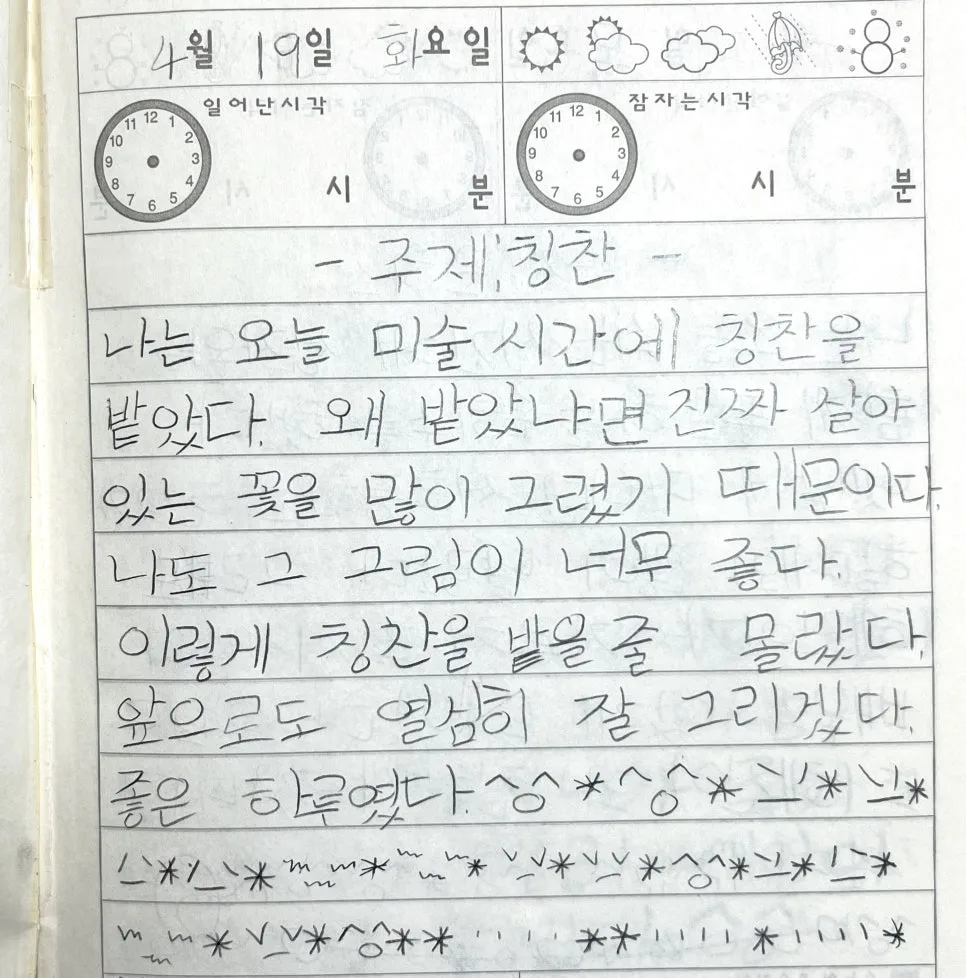 4월 19일 화요일
일어난시각 잠자는시각
12 1 2 3 4 5 6 7 8 9 10 11 12 1 2 3 4 5 6 7 8 9 10 11
시 분 시 분
- 주제:칭찬 -
나는 오늘 미술 시간에 칭찬을
밭았다. 왜 밭았냐면 진짜 살아
있는 꽃을 많이 그렸기 때문이다.
나도 그 그림이 너무 좋다.
이렇게 칭찬을 밭을 줄 몰랐다.
앞으로도 열심히 잘 그리겠다.
좋은 하루였다. ^o^ * ^o^ *